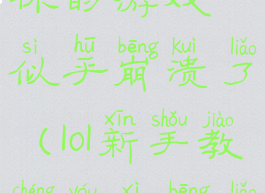 你的游戏
sì hū bēng kuì liǎo
似乎崩溃了
xīn shǒu jiào
(lol新手教
chéng yóu xì bēng